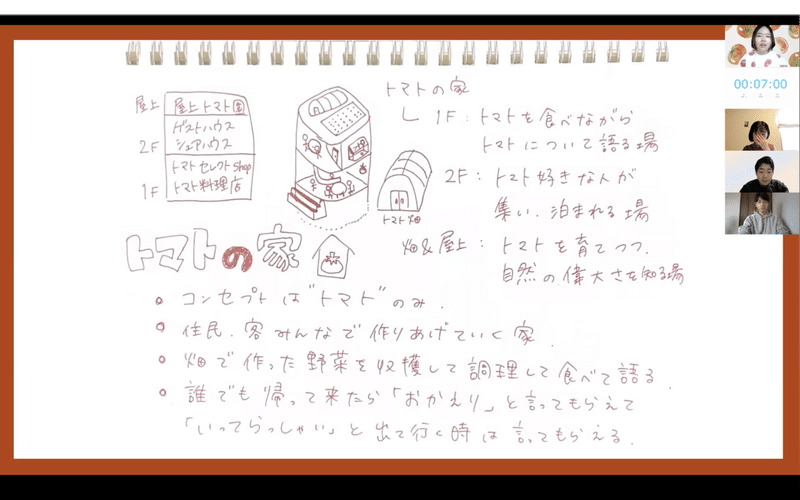 屋上
屋上トマト園
2F
ゲストハウス
シェアハウス
1F
トマトセレクトshop
トマト料理店
トマト畑
トマトの家
1F：トマトを食べながら
トマトについて語る場
2F：トマト好きな人が
集い、泊まれる場
畑&屋上：トマトを育てつつ、
自然の偉大さを知る場
トマトの家
• コンセプトは"トマト"のみ.
• 住民、客みんなで作りあげていく家.
• 畑で作った野菜を収穫して調理して食べて語る.
• 誰でも帰って来たら「おかえり」と言ってもらえて
「いってらっしゃい」と出て行く時は言ってもらえる.
00:07:00